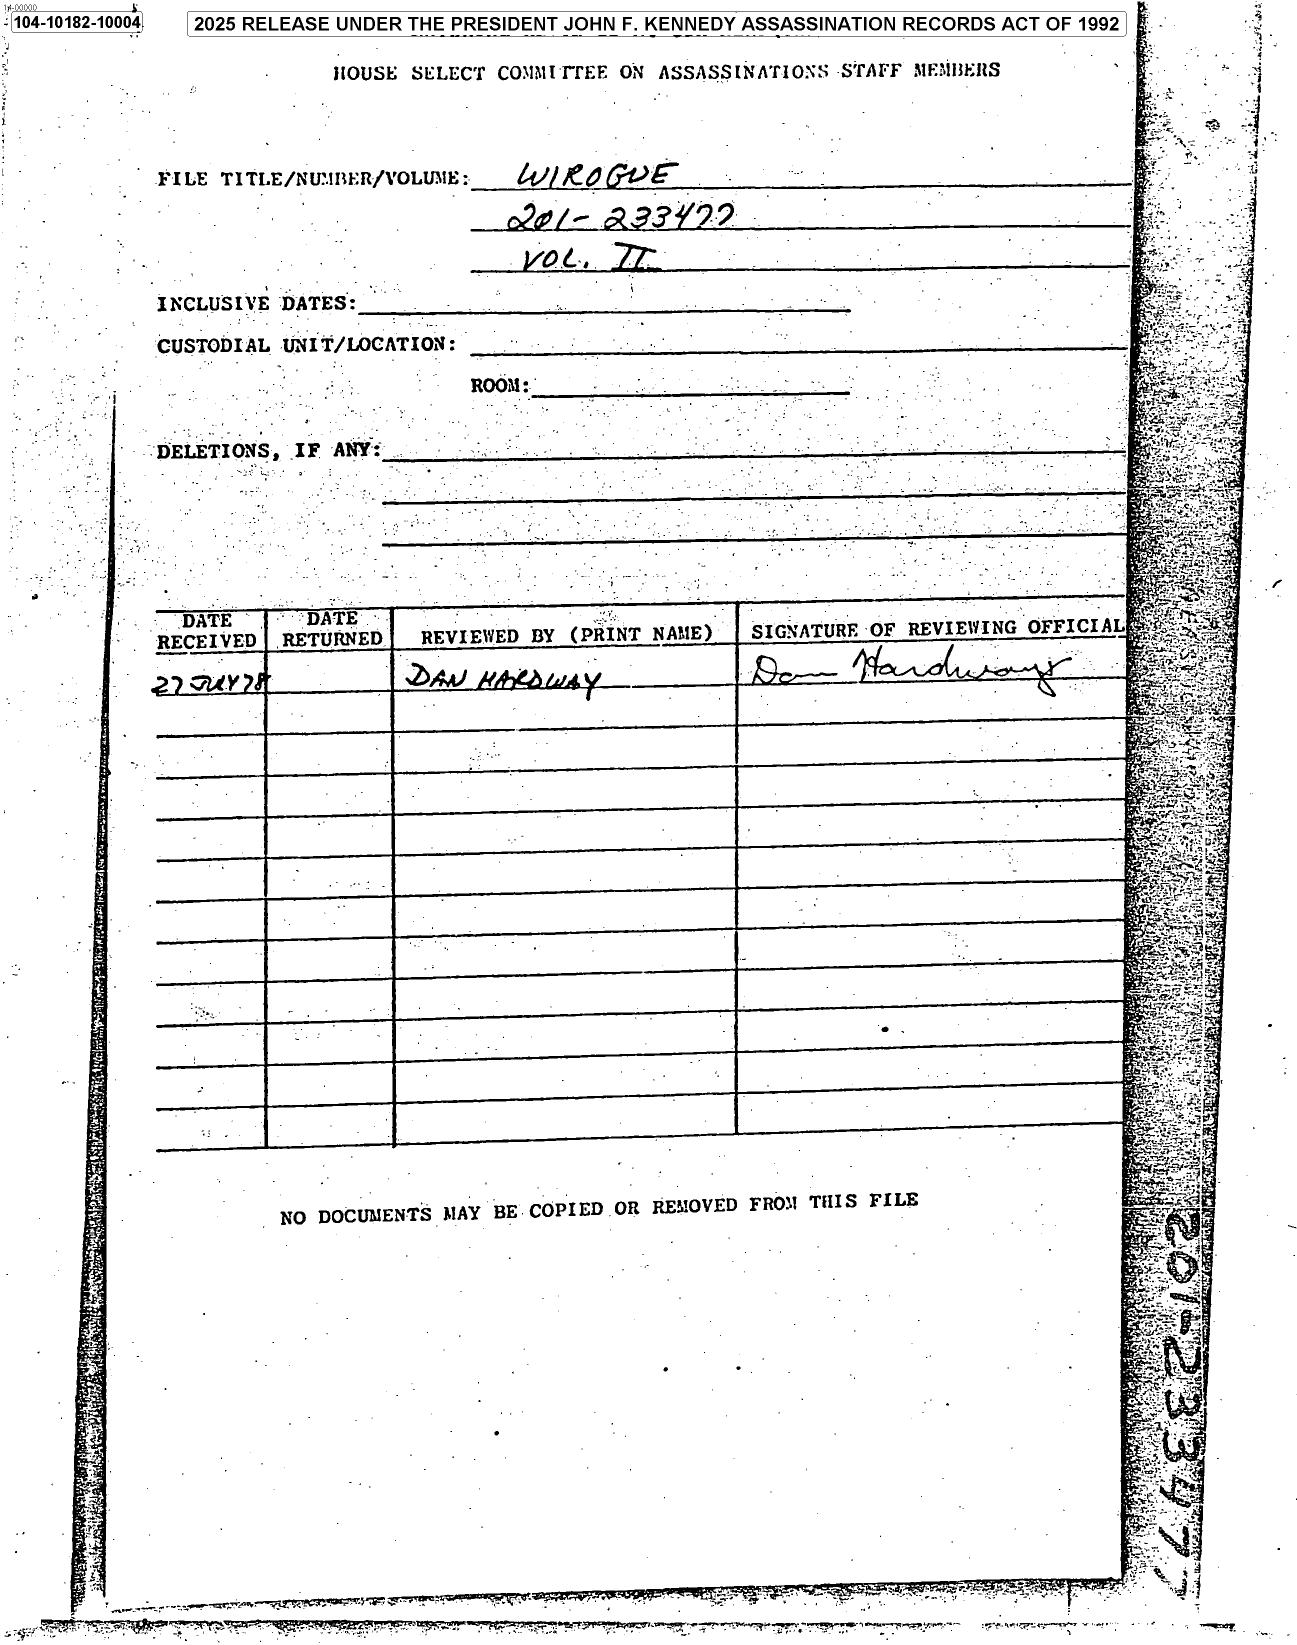 14-00000
104-10182-10004
2025 RELEASE UNDER THE PRESIDENT JOHN F. KENNEDY ASSASSINATION RECORDS ACT OF 1992
HOUSE SELECT COMMITTEE ON ASSASSINATIONS STAFF MEMBERS
FILE TITLE/NUMBER/VOLUME: WIROGUE
201-233477
VOL. II
INCLUSIVE DATES:
CUSTODIAL UNIT/LOCATION:
ROOM:
DELETIONS, IF ANY:
DATE RECEIVED DATE RETURNED REVIEWED BY (PRINT NAME) SIGNATURE OF REVIEWING OFFICIAL
27 JULY 78 DAN HARDWAY Dan Hardway
NO DOCUMENTS MAY BE COPIED OR REMOVED FROM THIS FILE
201-233477